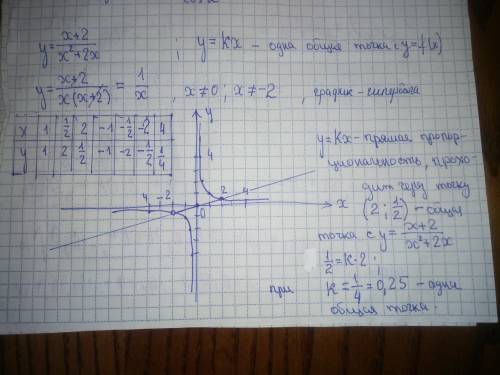 y = x+2 / x²+2x ; y = kx – одна общая точка с y=f(x)
y = x+2 / x(x+2) = 1/x , x≠0; x≠-2 , график - гипербола
x 1 1/2 2 -1 -1/2 -2 4
y 1 2 1/2 -1 -2 -1/2 1/4
y
4
4 -2
0
2 4
x
y=Kx - прямая пропор-
циональность, прохо-
дит через точку
(2; 1/2) - общая
точка с y = x+2 / x²+2x
1/2 = k·2 ;
при k = 1/4 = 0,25 - одна
общая точка.